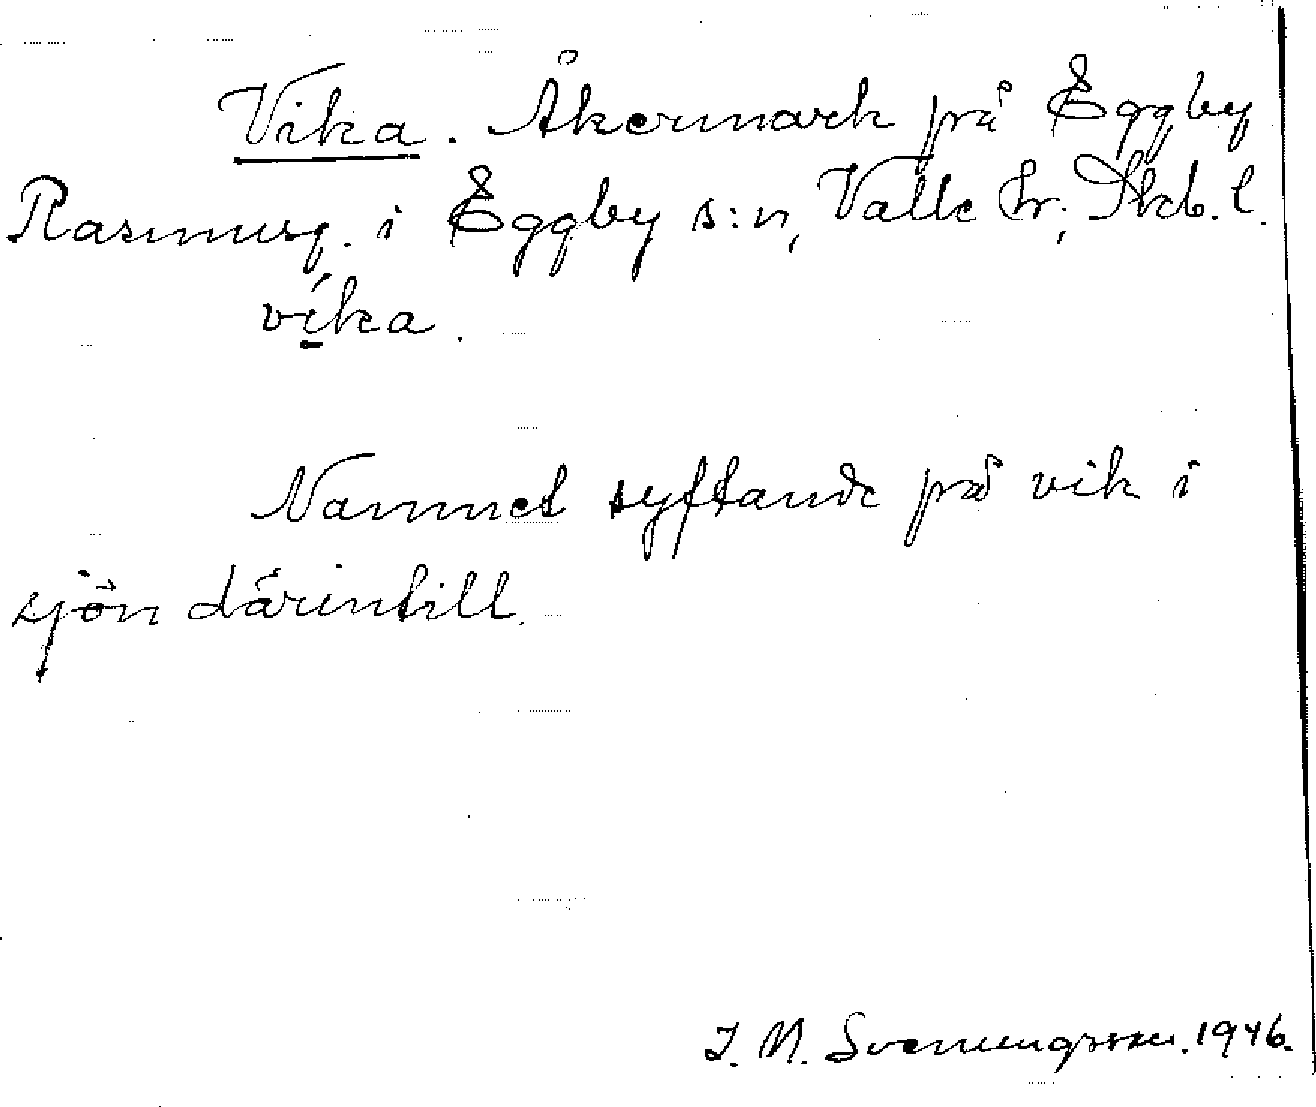 Vika. Åkermark på Eggby
Rasmusg. i Eggby s:n, Valle hr; Skb. l.
víka.
Namnet syftande på vik i
sjön därintill.
J. N. Svenungsson. 1946.